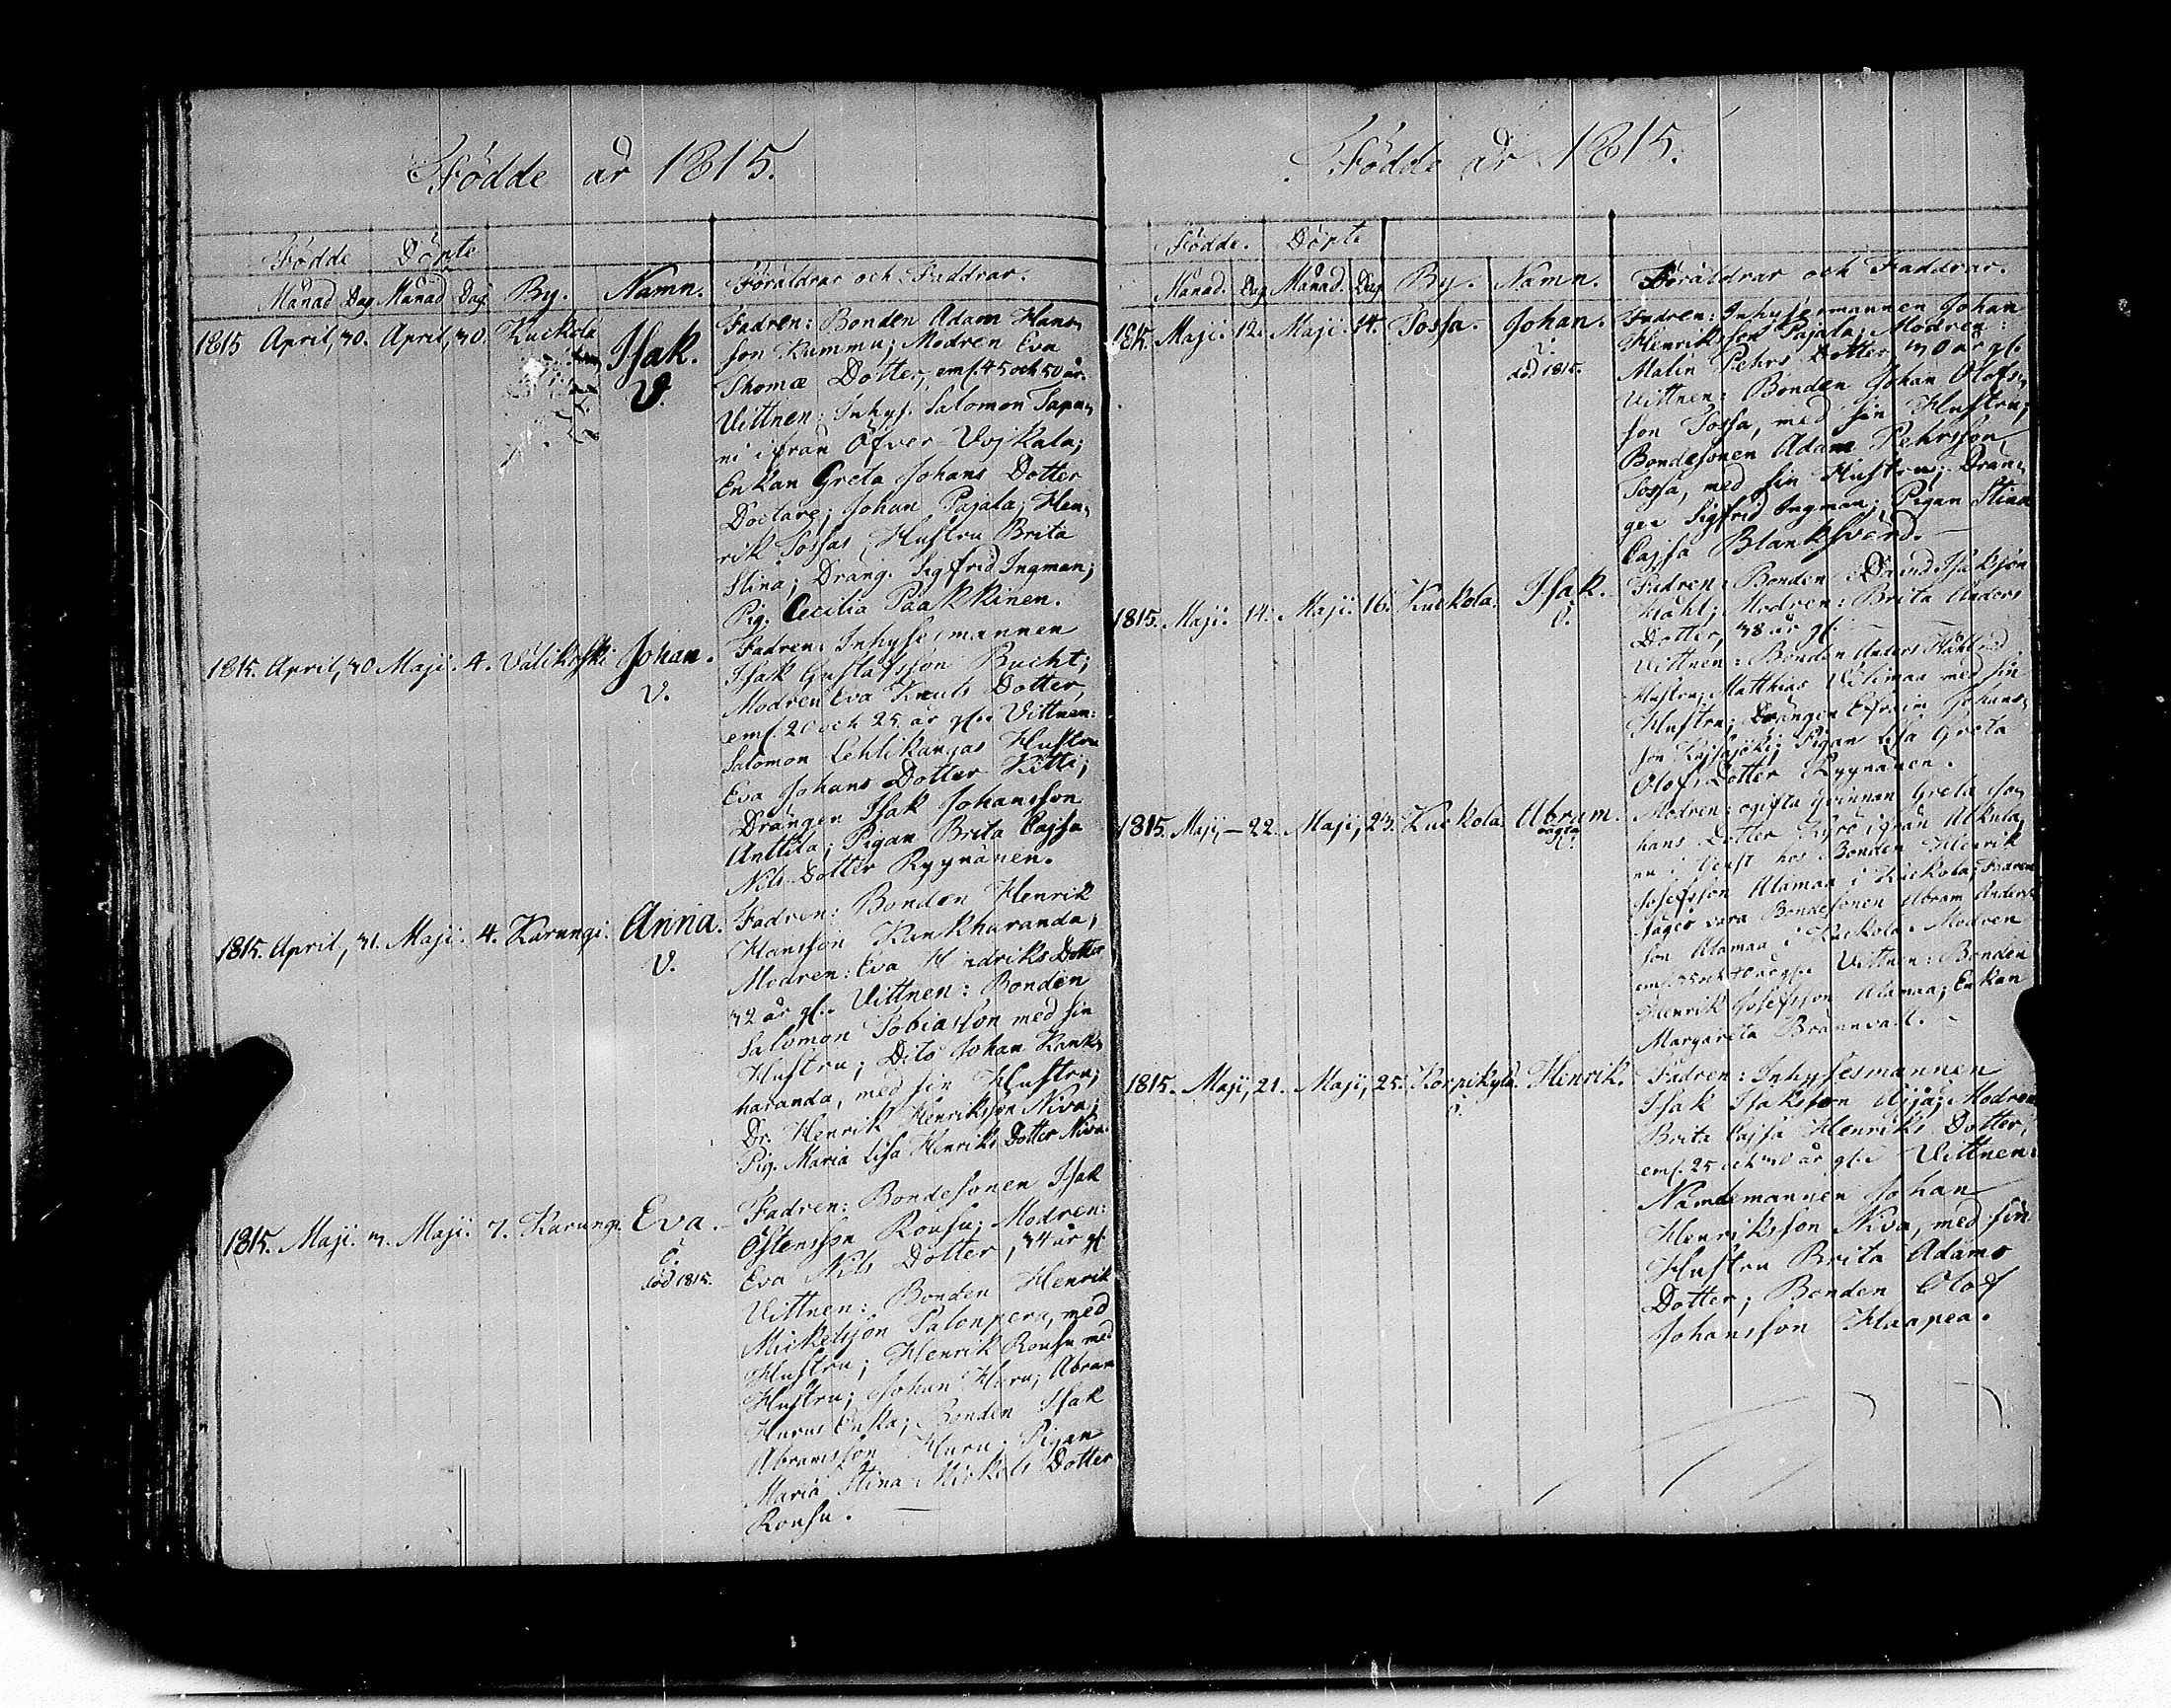 Födde år 1815.
Födde Döpte
Månad Dag. Månad Dag. By. Namn. Föräldrar och Faddrar.
1815 April, 30. April, 30. Kuckola Isak. V. Fadren: Bonden Adam Hans,
son Kummu; Modren Eva
Thomæ Dotter, emf. 45 och 50 år.
Vittnen: Inhys. Salomon Tapa,
ni ifrån Öfver-Vojkala;
Enkan Greta Johans Dotter
Doctare; Johan Pajala; Hen,
rik Tossas Hustru Brita
Stina; Dräng. Sigfrid Ingman;
Pig. Cecilia Paakkinen.
1815. April, 30 Maji. 4. Välikoski Johan. V. Fadren: Inhysesmannen
Isak Gustafsson Bucht;
Modren Eva Knuts Dotter,
emf. 20 och 25 år gl. Vittnen:
Salomon Lehtikangas Hustru
Eva Johans Dotter Kitti;
Drängen Isak Johansson
Anttila; Pigan Brita Cajsa
Nils Dotter Ryynänen.
1815. April, 31. Maji. 4. Karungi. Anna. V. Fadren: Bonden Henrik
Hansson Kankharanda;
Modren: Eva Hindriks Dotter
32 år gl. Vittnen: Bonden
Salomon Tobiasson med sin
Hustru; Dito Johan Kank,
haranda, med sin Hustru;
Dr. Henrik Henriksson Niva;
Pig. Maria Lisa Henriks Dotter Niva.
1815. Maji. 3. Maji. 7. Karungi. Eva. död 1815. Fadren: Bondesonen Isak
Östensson Rousu; Modren:
Eva Nils Dotter, 34 år gl.
Vittnen: Bonden Henrik
Mickelsson Palonpera, med
Hustru; Henrik Rousu med
Hustru; Johan Huru; Abram
Hurus Enka; Bonden Isak
Abramsson Huru; Pigan
Maria Stina Mickels Dotter
Rousu.
Födde år 1815.
Födde. Döpte
Månad. Dag Månad. Dag By. Namn. Föräldrar och Faddrar.
1815. Maji. 12. Maji. 14. Tossa. Johan. V. död 1815. Fadren: Inhysesmannen Johan
Henriksson Pajala; Modren:
Malin Pehrs Dotter, 30 år gl.
Vittnen: Bonden Johan Olofs,
son Tossa, med sin Hustru;
Bondesonen Adam Pehrsson
Tossa, med sin Hustru; Drän,
gen Sigfrid Ingman; Pigan Stina
Cajsa Blanksvärd.
1815. Maji. 14. Maji. 16. Kuckola. Isak. V. Fadren: Bonden David Isaksson
Måhl; Modren: Brita Anders
Dotter, 38 år gl.
Vittnen: Bonden Anders med
Hustru; Matthias Välimaa med sin
Hustru; Drängen Efraim Johans,
son; Pigan Lisa Greta
Olofs Dotter Ryynänen.
1815. Maji, — 22. Maji, 23. Kuckola. Abram. oägta Modren: ogifta Qvinnan Greta Jo,
hans Dotter Kyrö ifrån Alkula,
nu i tjenst hos Bonden Henrik
Josefsson Alamaa i Kuckola; Fadren
säges vara Bondesonen Abram Anders,
son Alamaa i Kuckola. Modren
emf. 35 och 40 år gl. Vittnen: Bonden
Henrik Josefsson Alamaa; Enkan
Margareta Brännvall.
1815. Maji, 21. Maji, 25. Korpikylä. Henrik. Fadren: Inhysesmannen
Isak Isaksson Äijä; Modren
Brita Cajsa Henriks Dotter,
emf. 25 och 30 år gl. Vittnen:
Nämdemannen Johan
Henriksson Niva, med sin
Hustru Brita Adams
Dotter; Bonden Olof
Johansson Haapea.